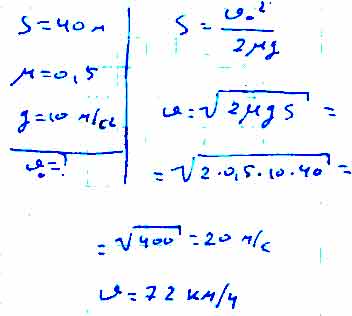 S = 40 м
μ = 0,5
g = 10 м/с²
υ₀ = ?
S = υ₀² / 2μg
υ = √2μgS =
= √2·0,5·10·40 =
= √400 = 20 м/с
υ = 72 км/ч